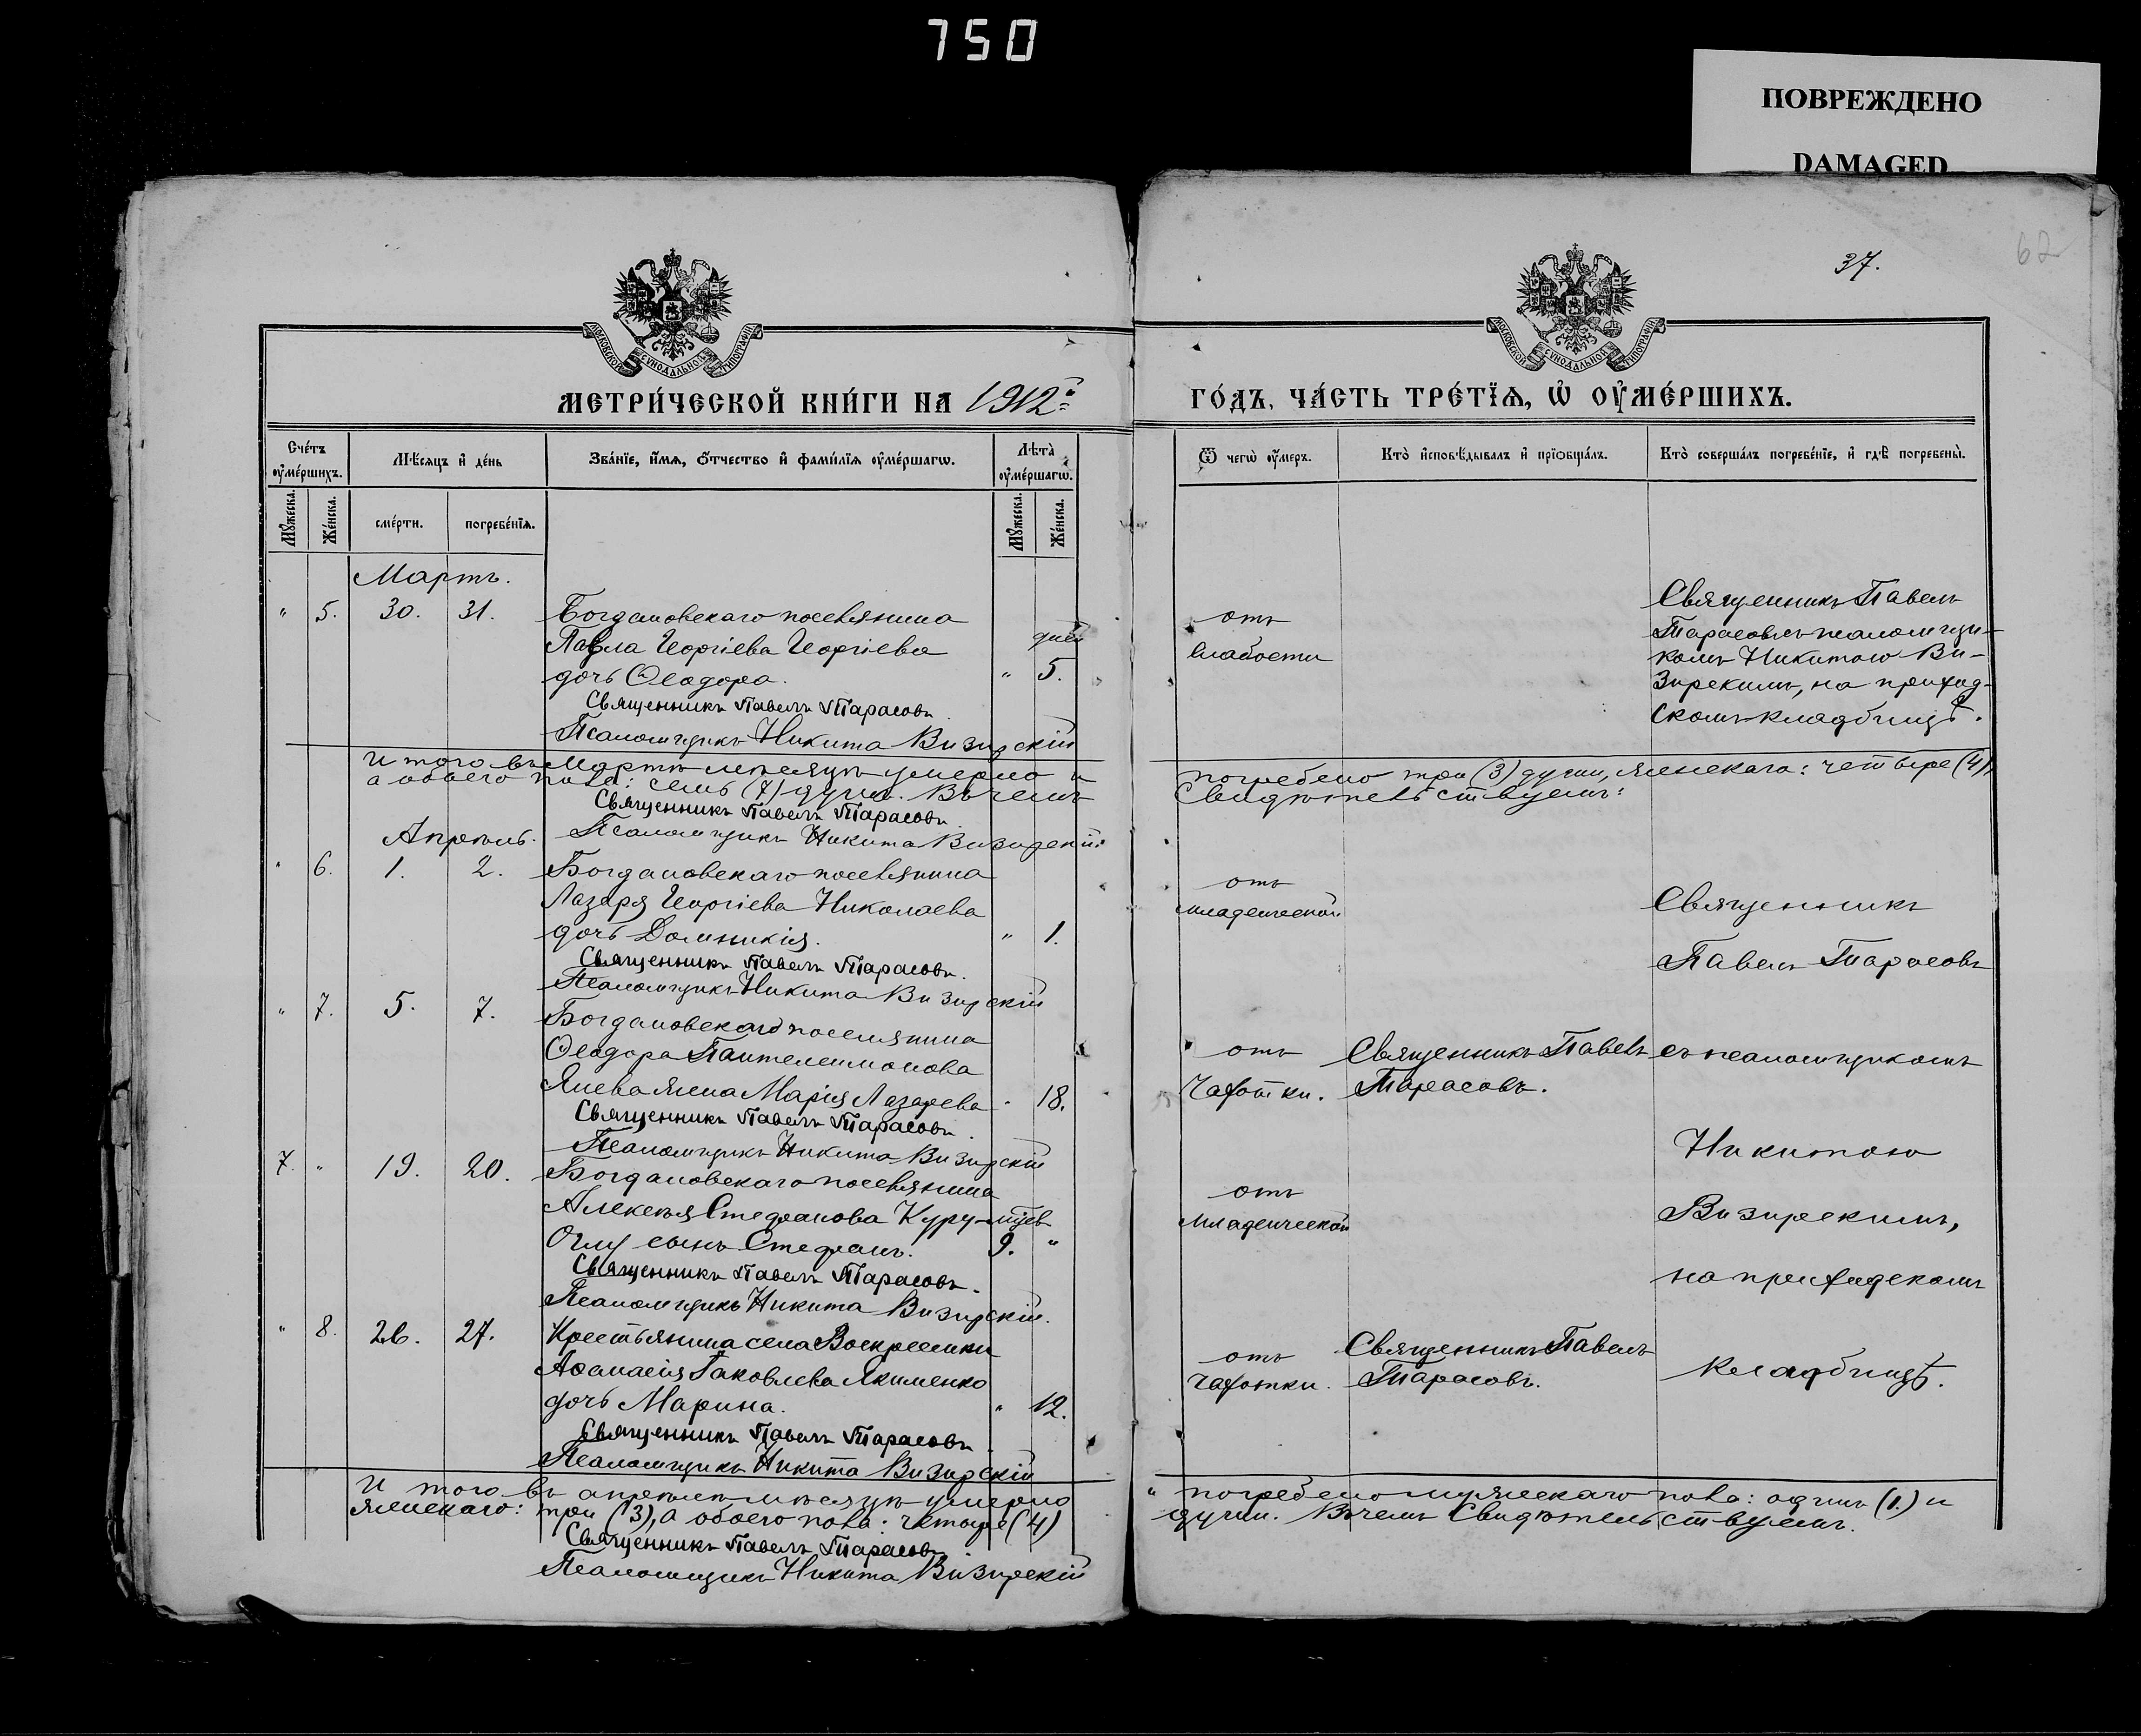 750
ПОВРЕЖДЕНО
DAMAGED
62
37.
МОСКОВСКОЙ СѴНОДАЛЬНОЙ ТИПОГРАФІИ
МОСКОВСКОЙ СѴНОДАЛЬНОЙ ТИПОГРАФІИ
МЕТРИ́ЧЕСКОЙ КНИ́ГИ НА 1912
ГО́ДЪ, ЧА́СТЬ ТРЕ́ТЇѦ, Ѽ ОУ҆МЕ́РШИХЪ.
Сче́тъ оу҆ме́ршихъ.
Мѣ́сяцъ и҆ де́нь
Зва́нїе, и҆́мѧ, ѻ҆́тчество и҆ фами́лїѧ оу҆ме́ршагѡ.
Лѣта̀ оу҆ме́ршагѡ.
Ѿ чегѡ̀ оу҆́меръ.
Кто̀ и҆сповѣ́дывалъ и҆ прїѡбща́лъ.
Кто̀ соверша́лъ погребе́нїе, и҆ гдѣ̀ погребены̀.
Мꙋ́жеска.
Же́нска.
сме́рти.
погребе́нїѧ.
Мꙋ́жеска.
Же́нска.
Мартъ.
" 5. 30. 31. Богдановскаго поселянина
Павла Георгіева Георгіева
дней
дочь Ѳеодора. " 5.
Священникъ Павелъ Тарасовъ.
Псаломщикъ Никита Визирскій
отъ
слабости
Священникъ Павелъ
Тарасовъ съ псаломщи-
комъ Никитою Ви-
зирскимъ, на приход-
скомъ кладбищѣ.
Итого въ Мартѣ мѣсяцѣ умерло и
погребено три (3) души, женскаго: четыре (4),
а обоего пола: семь (7) душъ. Въ чемъ
свидѣтельствуемъ:
Священникъ Павелъ Тарасовъ
Псаломщикъ Никита Визирскій.
Апрѣль.
" 6. 1. 2. Богдановскаго поселянина
Лазаря Георгіева Николаева
дочь Домникія. " 1.
Священникъ Павелъ Тарасовъ.
Псаломщикъ Никита Визирскій
отъ
младенческой
Священникъ
Павелъ Тарасовъ
" 7. 5. 7. Богдановскаго поселянина
Ѳеодора Пантелеимонова
Янева жена Марія Лазарева " 18.
Священникъ Павелъ Тарасовъ.
Псаломщикъ Никита Визирскій
отъ
чахотки.
Священникъ Павелъ
Тарасовъ.
съ псаломщикомъ
Никитою
7. " 19. 20. Богдановскаго поселянина
Алексѣя Стефанова Куру-
мѣсяцевъ
Оглу сынъ Стефанъ. 9. "
Священникъ Павелъ Тарасовъ.
Псаломщикъ Никита Визирскій.
отъ
младенческой
Визирскимъ,
на приходскомъ
" 8. 26. 27. Крестьянина села Воскресенки
Аѳанасія Іаковлева Якименко
дочь Марина. " 12.
Священникъ Павелъ Тарасовъ
Псаломщикъ Никита Визирскій
отъ
чахотки.
Священникъ Павелъ
Тарасовъ.
кладбищѣ.
Итого въ апрѣлѣ мѣсяцѣ умерло
и погребено мужескаго пола: одинъ (1.) и
женскаго: три (3), а обоего пола: четыре (4)
души. Въ чемъ свидѣтельствуемъ.
Священникъ Павелъ Тарасовъ
Псаломщикъ Никита Визирскій